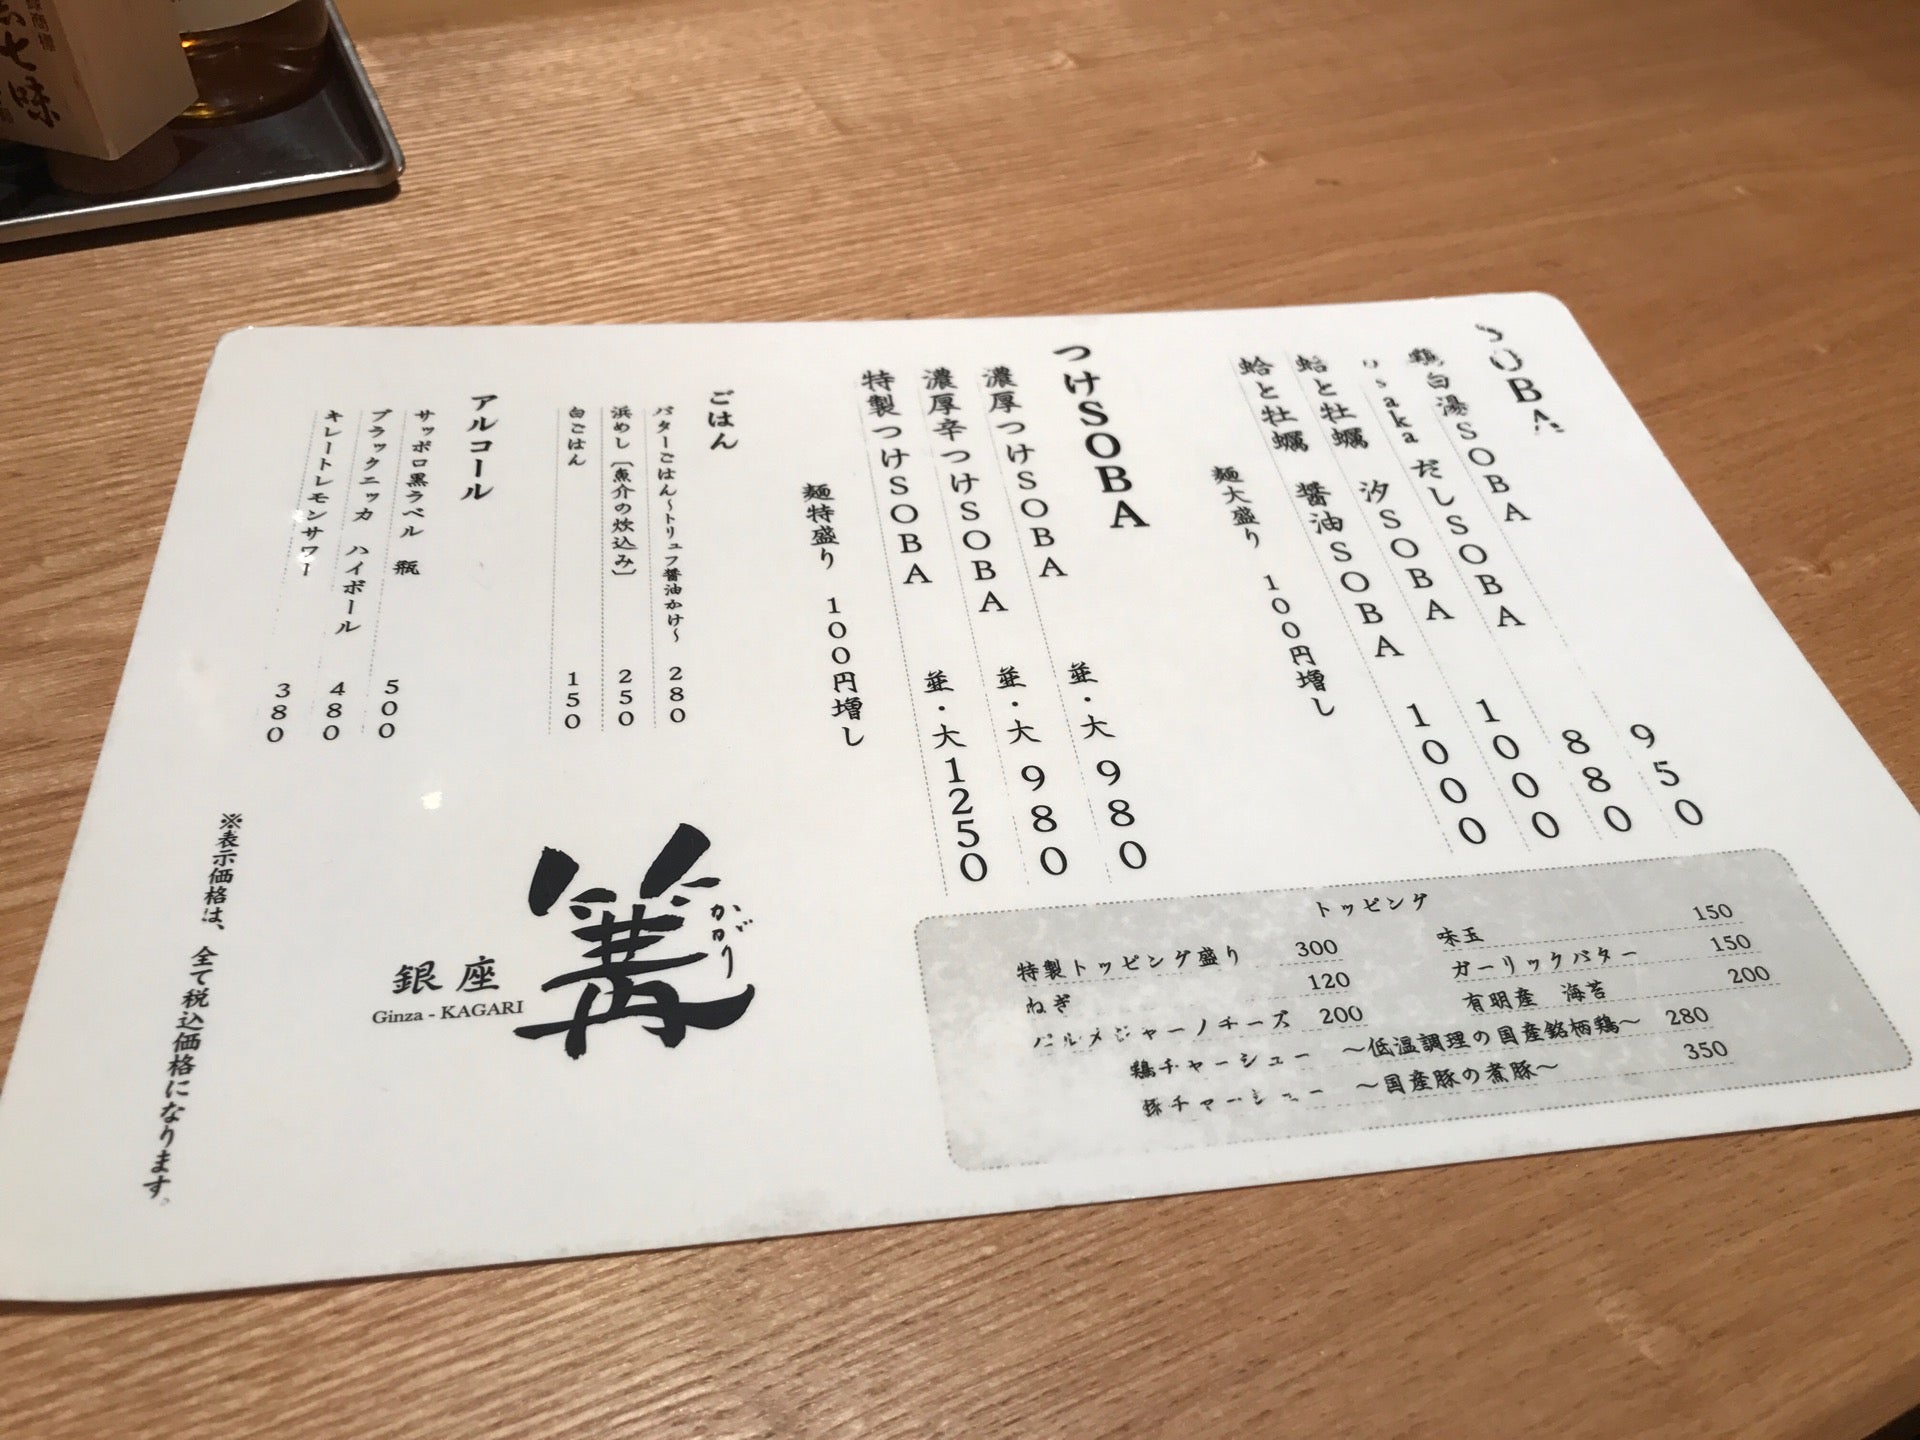 七味
SOBA
鶏白湯SOBA 950
Osaka だしSOBA 880
蛤と牡蠣 汐SOBA 1000
蛤と牡蠣 醤油SOBA 1000
麺大盛り 100円増し
つけSOBA
濃厚つけSOBA 並・大 980
濃厚辛つけSOBA 並・大 980
特製つけSOBA 並・大 1250
麺特盛り 100円増し
ごはん
バターごはん〜トリュフ醤油かけ〜 280
浜めし〔魚介の炊込み〕 250
白ごはん 150
アルコール
サッポロ黒ラベル 瓶 500
ブラックニッカ ハイボール 480
キレートレモンサワー 380
トッピング
特製トッピング盛り 300
ねぎ 120
パルメジャーノチーズ 200
味玉 150
ガーリックバター 150
有明産 海苔 200
鶏チャーシュー 〜低温調理の国産銘柄鶏〜 280
豚チャーシュー 〜国産豚の煮豚〜 350
篝
かがり
銀座
Ginza - KAGARI
※表示価格は、全て税込価格になります。